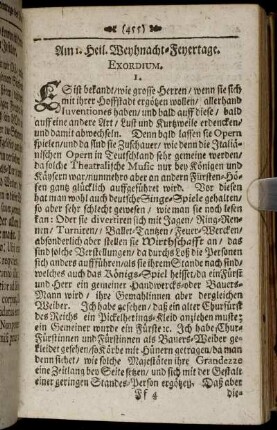 (455)
Am 1. Heil. Weyhnacht-Feyertage.
EXORDIUM.
I.
ES ist bekandt / wie grosse Herren / wenn sie sich
mit ihrer Hoffstadt ergötzen wollen / allerhand
Inventiones haben / und bald auff diese / bald
auff eine andere Art / Lust und Kurtzweile erdencken /
und damit abwechseln. Denn bald lassen sie Opern
spielen / und da sind sie Zuschauer / wie denn die Italiä-
nischen Opern in Teutschland sehr gemeine werden /
da solche Theatralische Music nur bey Königen und
Käysern war / nunmehro aber an andern Fürsten-Hö-
fen gantz glücklich auffgeführet wird. Vor diesen
hat man wohl auch deutsche Singe-Spiele gehalten /
so aber sehr schlecht gewesen / wie man sie noch lesen
kan: Oder sie divertiren sich mit Jagen / Ring-Ren-
nen / Turniren / Ballet-Tantzen / Feuer-Wercken /
absonderlich aber stellen sie Wirthschafft an / das
sind solche Verstellungen / da durchs Loß die Personen
sich anders aufführen als sie ihrem Stande nach sind /
welches auch das Königs-Spiel heisset / da ein Fürst
und Herr ein gemeiner Handwercks- oder Bauers-
Mann wird / ihre Gemahlinnen aber dergleichen
Weiber. Ich habe gesehen / daß ein alter Churfürst
des Reichs ein Pickelherings-Kleid anziehen muste :
ein Gemeiner wurde ein Fürste ꝛc. Ich habe Chur-
Fürstinnen und Fürstinnen als Bauers-Weiber ge-
kleidet gesehen / so Körbe mit Hünern getragen / da man
denn siehet / wie solche Majestäten ihre Grandezze
eine Zeitlang bey Seite setzen / und sich mit der Gestalt
einer geringen Standes-Person ergötzen. Daß aber
Ff 4 die-